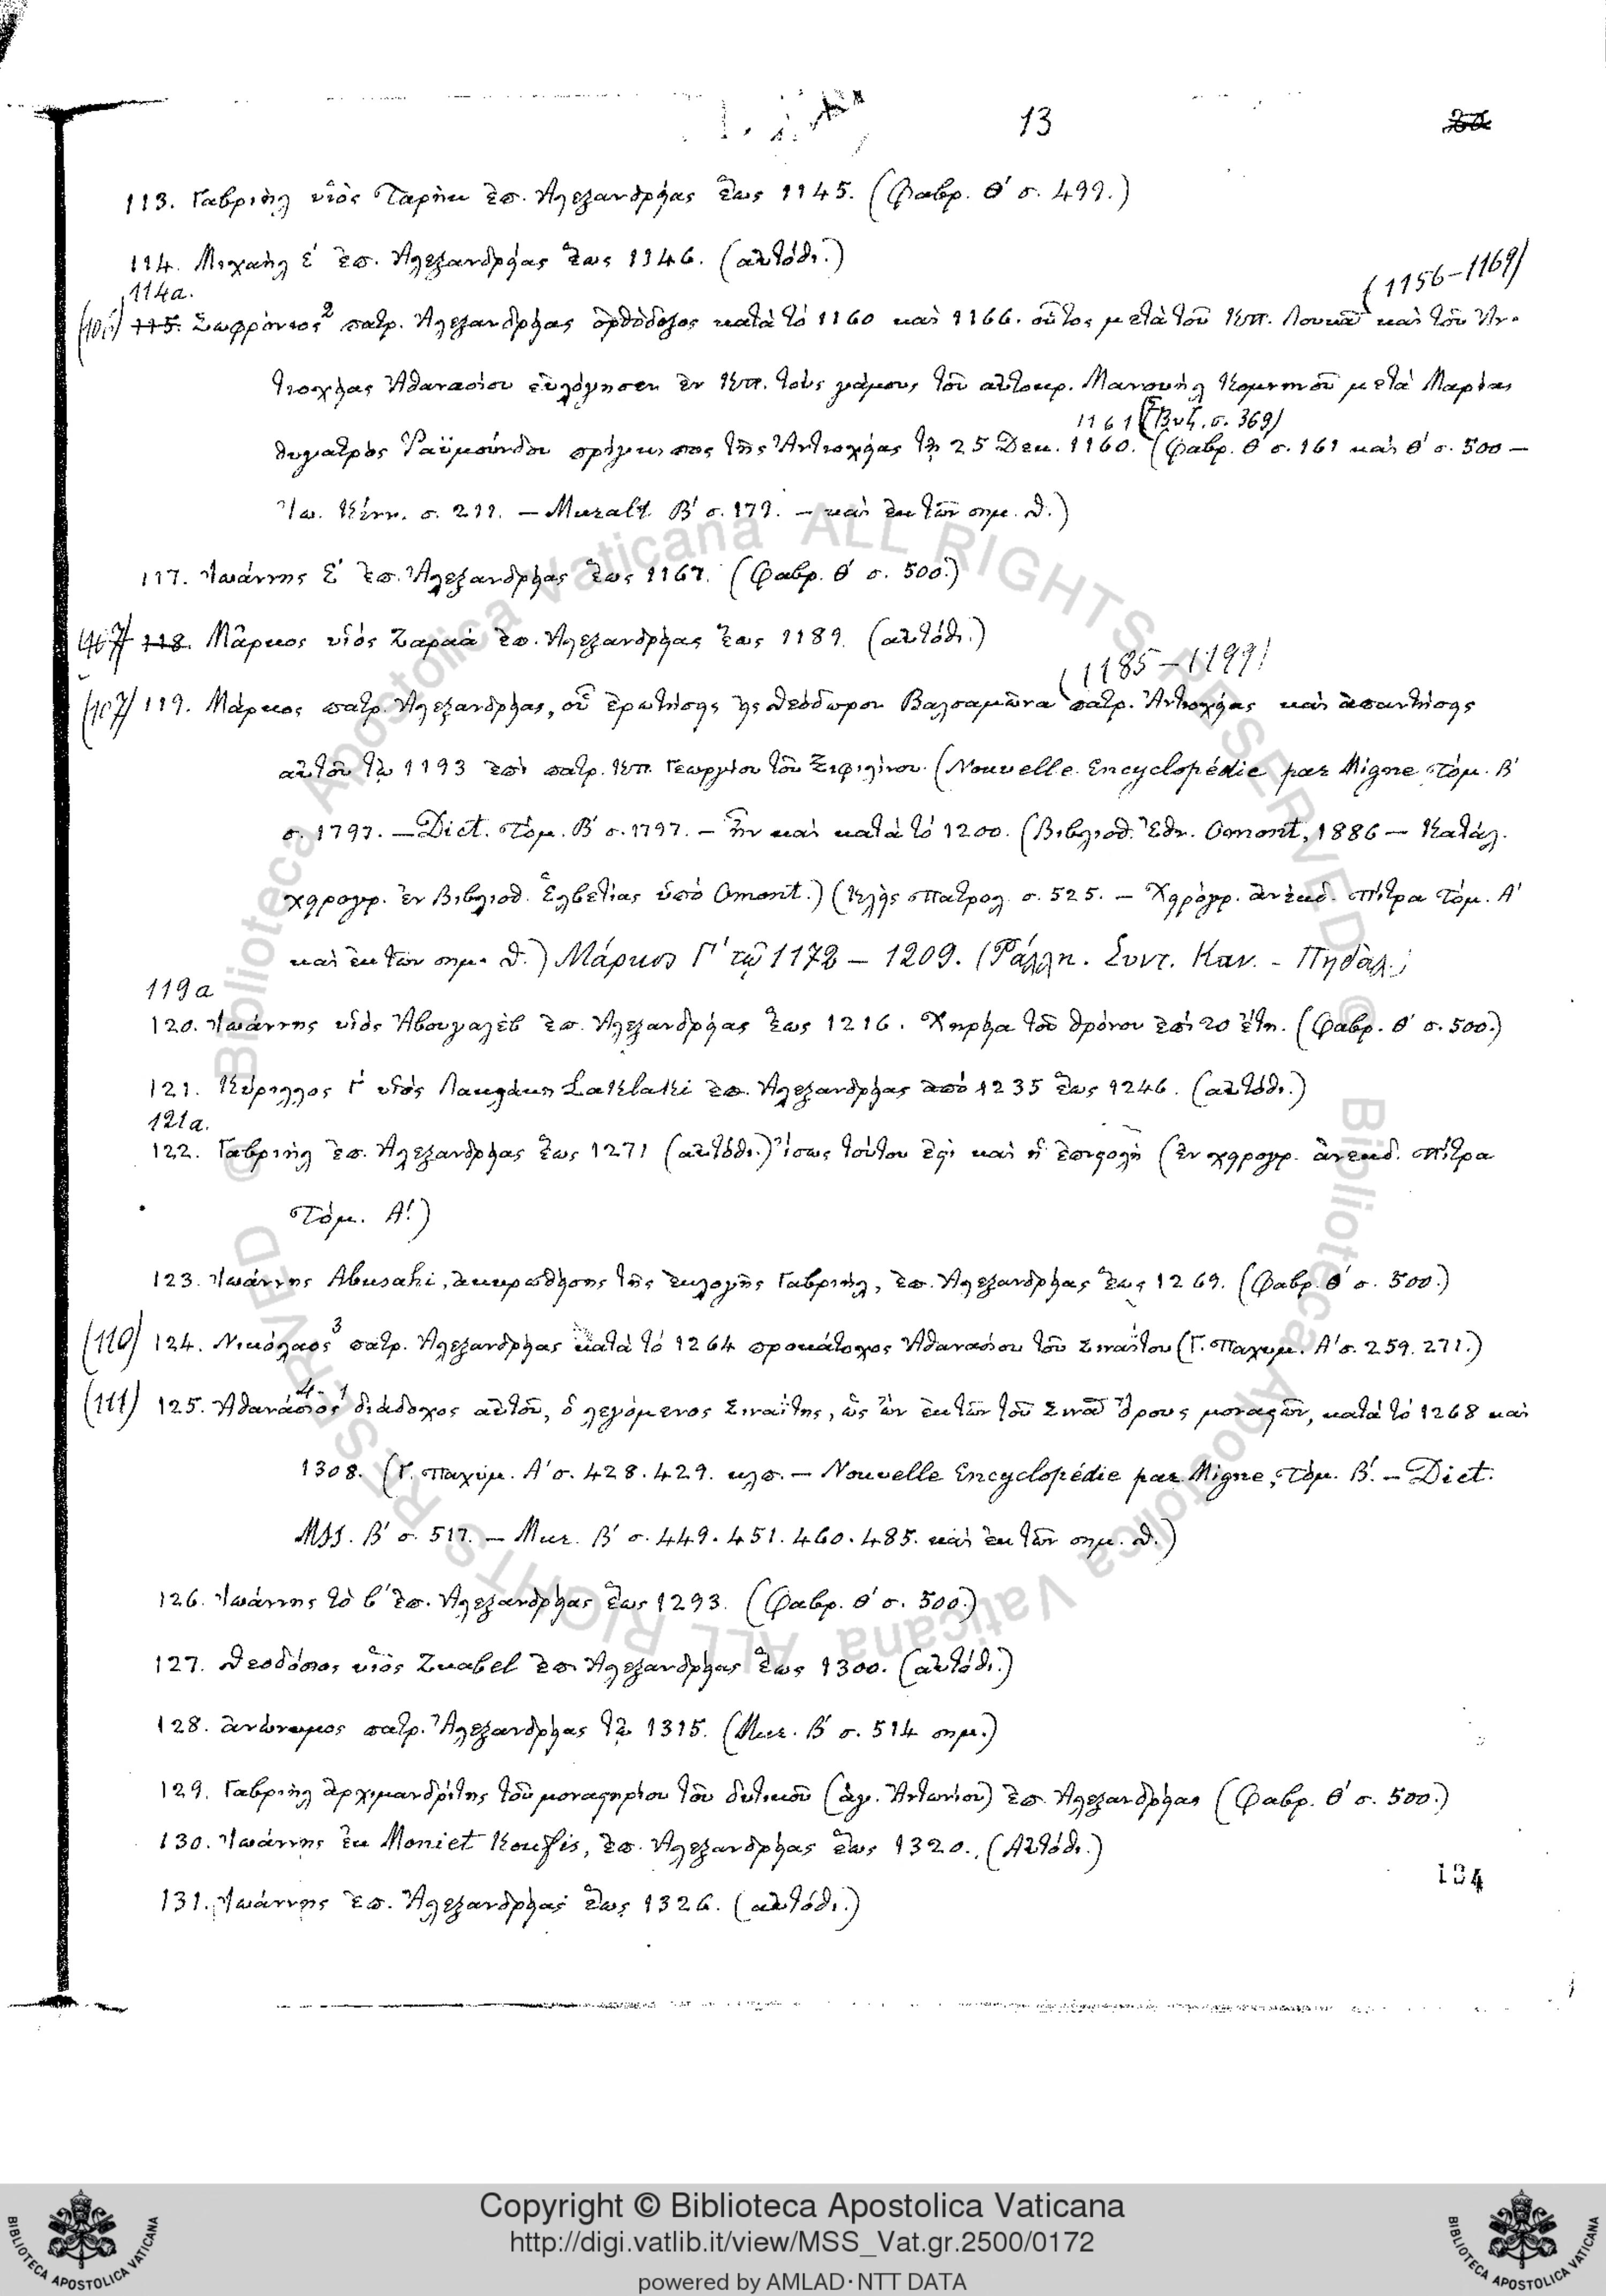 13
113. Γαβριὴλ υἱὸς Ταρὴκ ἐπ. Ἀλεξανδρείας ἕως 1145. (Φαβρ. Θʹ σ. 499.)
114. Μιχαὴλ Εʹ ἐπ. Ἀλεξανδρείας ἕως 1146. (αὐτόθι.)
114a. (1156-1169)
115. Σωφρόνιος 2 πατρ. Ἀλεξανδρείας ὀρθόδοξος κατὰ τὸ 1160 καὶ 1166. οὗτος μετὰ τοῦ Κπ. Λουκᾶ καὶ τοῦ Ἀν-
τιοχείας Ἀθανασίου εὐλόγησεν ἐν Κπ. τοὺς γάμους τοῦ αὐτοκρ. Μανουὴλ Κομνηνοῦ μετὰ Μαρίας
1161 (Βυζ. σ. 369)
θυγατρὸς Ῥαϋμούνδου πρίγκιπος τῆς Ἀντιοχείας τῇ 25 Δεκ. 1160. (Φαβρ. Θʹ σ. 161 καὶ Θʹ σ. 500 —
Ἰω. Κίνν. σ. 211. — Muralt. Βʹ σ. 179. — καὶ ἐκ τῶν σημ. Θ.)
117. Ἰωάννης Εʹ ἐπ. Ἀλεξανδρείας ἕως 1167. (Φαβρ. Θʹ σ. 500.)
118. Μᾶρκος υἱὸς Ζαραὰ ἐπ. Ἀλεξανδρείας ἕως 1189. (αὐτόθι.)
(1185-1199)
(107) 119. Μάρκος πατρ. Ἀλεξανδρείας, οὗ ἐρωτήσεις εἰς Θεόδωρον Βαλσαμῶνα πατρ. Ἀντιοχείας καὶ ἀπαντήσεις
αὐτοῦ τῷ 1193 ἐπὶ πατρ. Κπ. Γεωργίου τοῦ Ξιφιλίνου. (Nouvelle Encyclopédie par Migne Τόμ. Βʹ
σ. 1797. — Dict. Τόμ. Βʹ σ. 1797. — ἦν καὶ κατὰ τὸ 1200. (Βιβλιοθ. Ἐθν. Omont, 1886 — Κατάλ.
χειρογρ. ἐν Βιβλιοθ. Ἑλβετίας ὑπὸ Omont.) (Κλεὶς Πατρολ. σ. 525. — Χειρόγρ. ἀνέκδ. Πίτρα Τόμ. Αʹ
καὶ ἐκ τῶν σημ. Θ.) Μάρκος Γʹ τῷ 1172 — 1209. (Ράλλη. Συντ. Καν. - Πηδάλ.)
119a
120. Ἰωάννης υἱὸς Ἀβουγαλὲβ ἐπ. Ἀλεξανδρείας ἕως 1216. Χηρεία τοῦ θρόνου ἐπὶ 20 ἔτη. (Φαβρ. Θʹ σ. 500.)
121. Κύριλλος Γʹ υἱὸς Λακλάκη Laklaki ἐπ. Ἀλεξανδρείας ἀπὸ 1235 ἕως 1246. (αὐτόθι.)
121a.
122. Γαβριὴλ ἐπ. Ἀλεξανδρείας ἕως 1271 (αὐτόθι.) ἴσως τούτου ἐστὶ καὶ ἡ ἐπιστολὴ (ἐν χειρογρ. ἀνεκδ. Πίτρα
Τόμ. Αʹ.)
123. Ἰωάννης Abusahi, ἀκυρωθείσης τῆς ἐκλογῆς Γαβριὴλ, ἐπ. Ἀλεξανδρείας ἕως 1269. (Φαβρ. Θʹ σ. 500.)
(110) 124. Νικόλαος 3 πατρ. Ἀλεξανδρείας κατὰ τὸ 1264 προκάτοχος Ἀθανασίου τοῦ Σιναΐτου (Γ. Παχυμ. Αʹ σ. 259. 271.)
(111) 125. Ἀθανάσιος διάδοχος αὐτοῦ, ὁ λεγόμενος Σιναΐτης, ὡς ὢν ἐκ τῶν τοῦ Σινᾶ Ὄρους μοναχῶν, κατὰ τὸ 1268 καὶ
1308. (Γ. Παχύμ. Αʹ σ. 428. 429. κλπ. — Nouvelle Encyclopédie par Migne, Τόμ. Βʹ. — Dict.
MSS. Βʹ σ. 517. — Mur. Βʹ σ. 449. 451. 460. 485. καὶ ἐκ τῶν σημ. Θ.)
126. Ἰωάννης τὸ βʹ ἐπ. Ἀλεξανδρείας ἕως 1293. (Φαβρ. Θʹ σ. 500.)
127. Θεοδόσιος υἱὸς Zuabel ἐπ. Ἀλεξανδρείας ἕως 1300. (αὐτόθι.)
128. ἀνώνυμος πατρ. Ἀλεξανδρείας τῷ 1315. (Mur. Βʹ σ. 514 σημ.)
129. Γαβριὴλ ἀρχιμανδρίτης τοῦ μοναστηρίου τοῦ δυτικοῦ (ἁγ. Ἀντωνίου) ἐπ. Ἀλεξανδρείας (Φαβρ. Θʹ σ. 500.)
130. Ἰωάννης ἐκ Moniet Koufis, ἐπ. Ἀλεξανδρείας ἕως 1320. (Αὐτόθι.)
134
131. Ἰωάννης ἐπ. Ἀλεξανδρείας ἕως 1326. (αὐτόθι.)
© Biblioteca Apostolica Vaticana ALL RIGHTS RESERVED © Biblioteca Apostolica Vaticana ALL RIGHTS RESERVED
Copyright © Biblioteca Apostolica Vaticana
http://digi.vatlib.it/view/MSS_Vat.gr.2500/0172
powered by AMLAD·NTT DATA
BIBLIOTECA APOSTOLICA VATICANA
BIBLIOTECA APOSTOLICA VATICANA